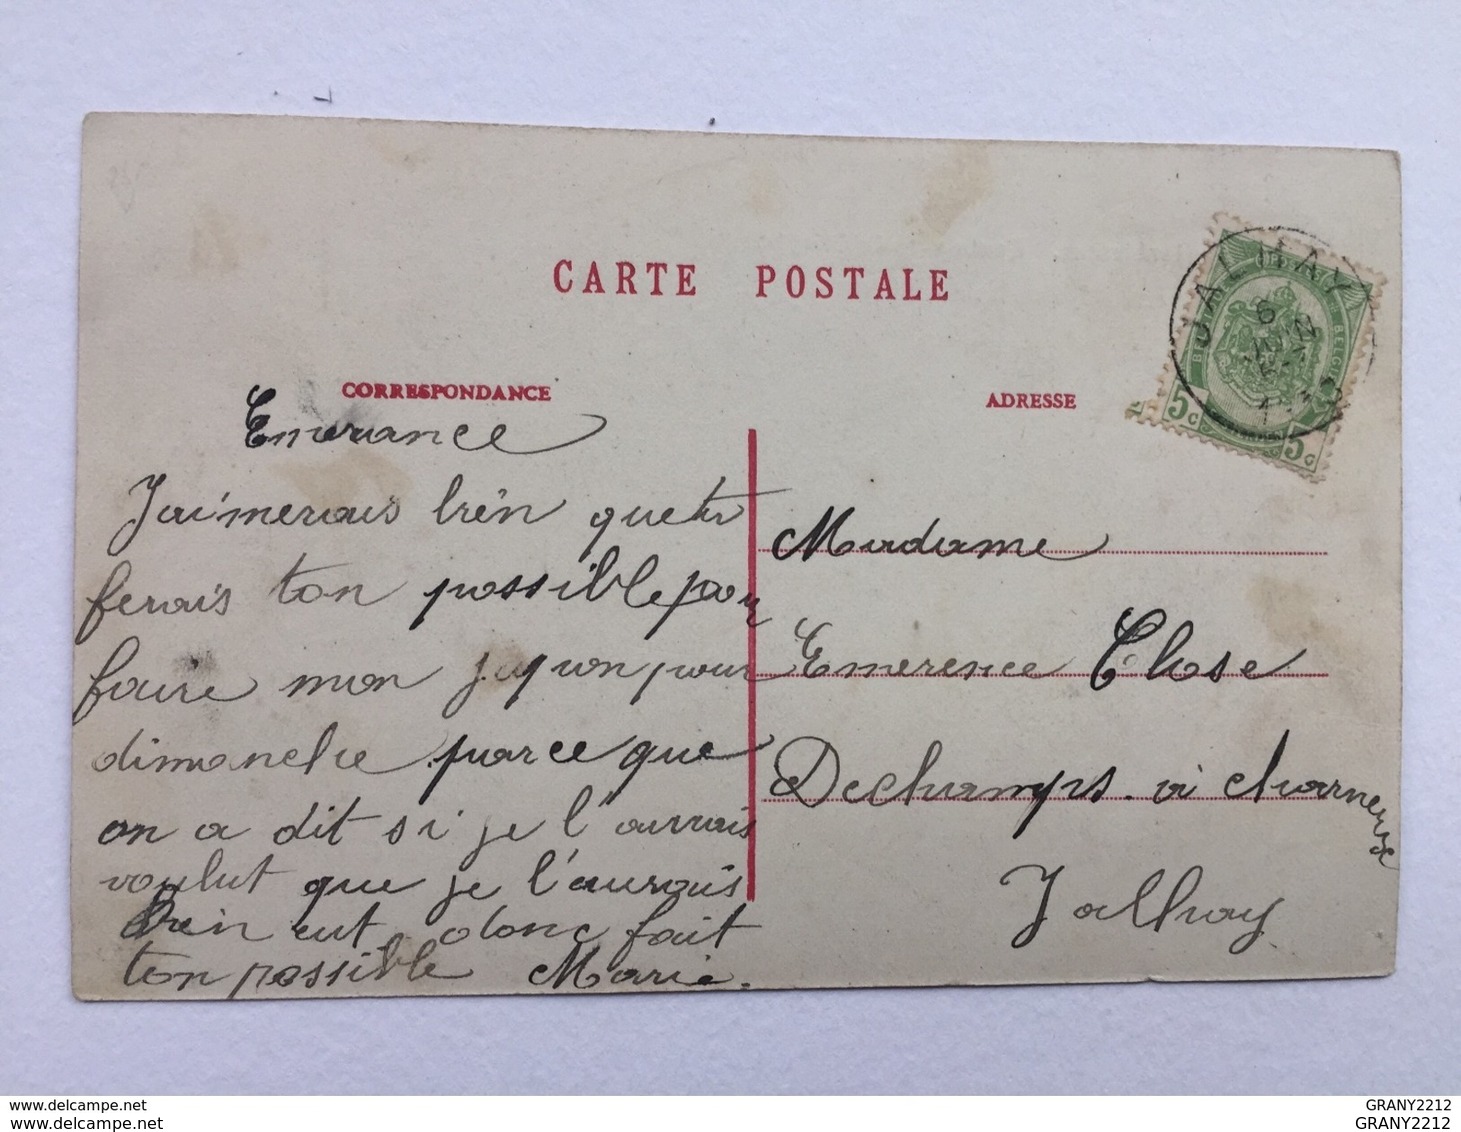 CARTE POSTALE
CORRESPONDANCE
Emerance
J'aimerais bien que tu
ferais ton possible pour
faire mon jupon pour
dimanche parce que
on a dit si je l'aurrais
voulut que je l'aurais
bien eut donc fait
ton possible Marie.
ADRESSE
Madame
Emerence Close
Dechamps à charneux
Jalhay
JALHAY
6
JUIN
BELGIQUE
5c 5c
www.delcampe.net
www.delcampe.net
GRANY2212
GRANY2212